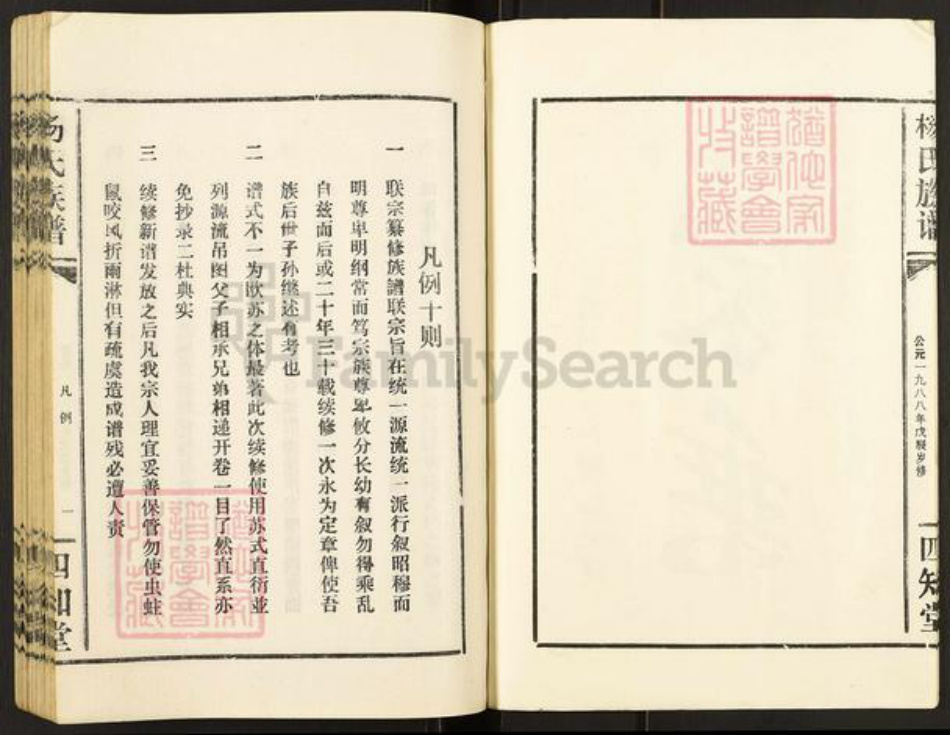 杨氏族谱
公元一九八八年戊辰岁修
四知堂
猶他家
譜學會
收藏
凡例十则
一 联宗纂修族譜联宗旨在统一源流统一派行叙昭穆而
明尊卑明纲常而笃宗族尊卑攸分长幼有叙勿得乘乱
自兹而后或二十年三十载续修一次永为定章俾使吾
族后世子孙继述有考也
二 谱式不一为欧苏之体最著此次续修使用苏式直衍並
列源流吊图父子相承兄弟相递开卷一目了然直系亦
免抄录二杜典实
三 续修新谱发放之后凡我宗人理宜妥善保管勿使虫蛀
鼠咬风折雨淋但有疏虞造成谱残必遭人责
杨氏族谱
凡例
一
四知堂
猶他家
譜學會
收藏
FamilySearch